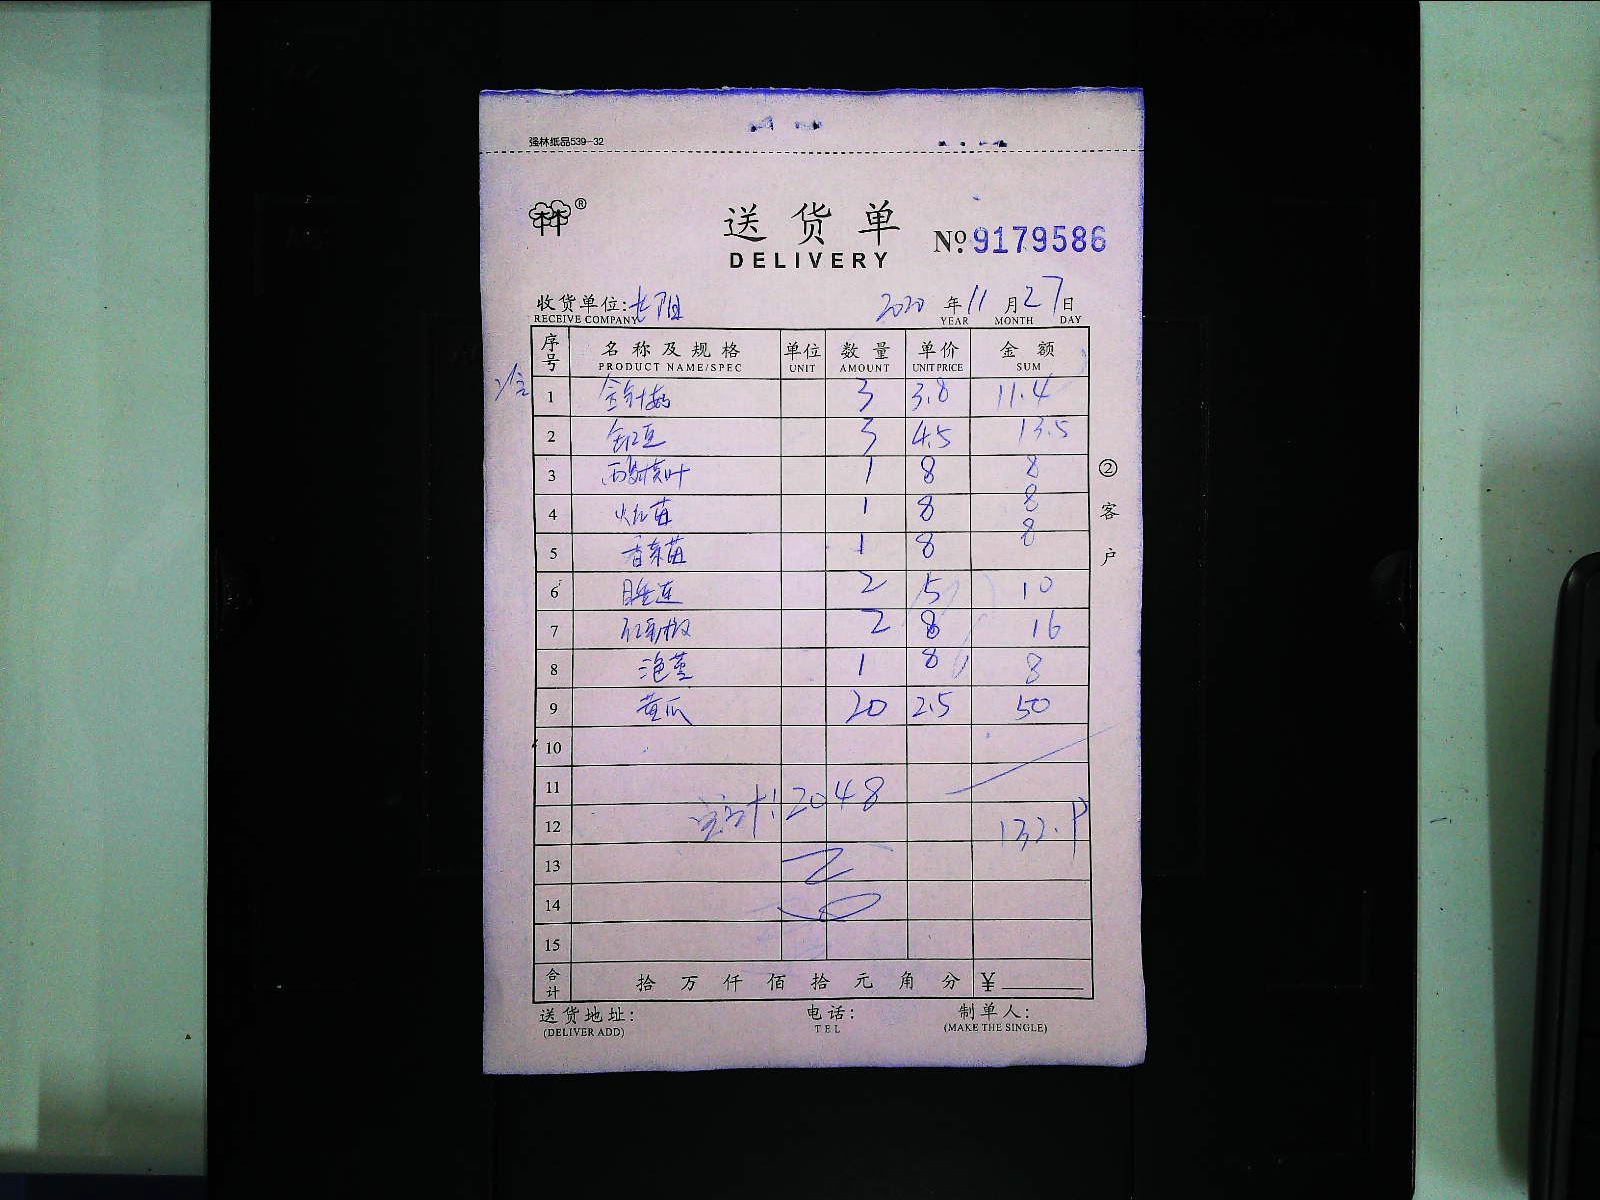 强林纸品539-32
林®
送货单
DELIVERY
№ 9179586
收货单位: 2020 年 11 月 27 日
RECEIVE COMPANY YEAR MONTH DAY
序号 名称及规格 单位 数量 单价 金额
PRODUCT NAME/SPEC UNIT AMOUNT UNIT PRICE SUM
1 金针菇 3 3.8 11.4
2 3 4.5 13.5
3 1 8 8
4 1 8 8
5 香菜苗 1 8 8
6 2 5 10
7 2 8 16
8 1 8 8
9 黄瓜 20 2.5 50
10
11 2048
12 132.9
13
14
15
合计 拾 万 仟 佰 拾 元 角 分 ¥
送货地址: 电话: 制单人:
(DELIVER ADD) TEL (MAKE THE SINGLE)
② 客户